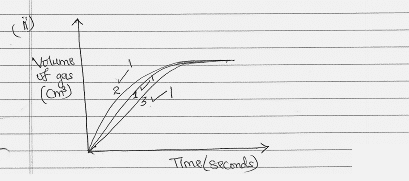 (ii)
Volume
of gas
(cm³)
1
2
1
3
1
Time(seconds)